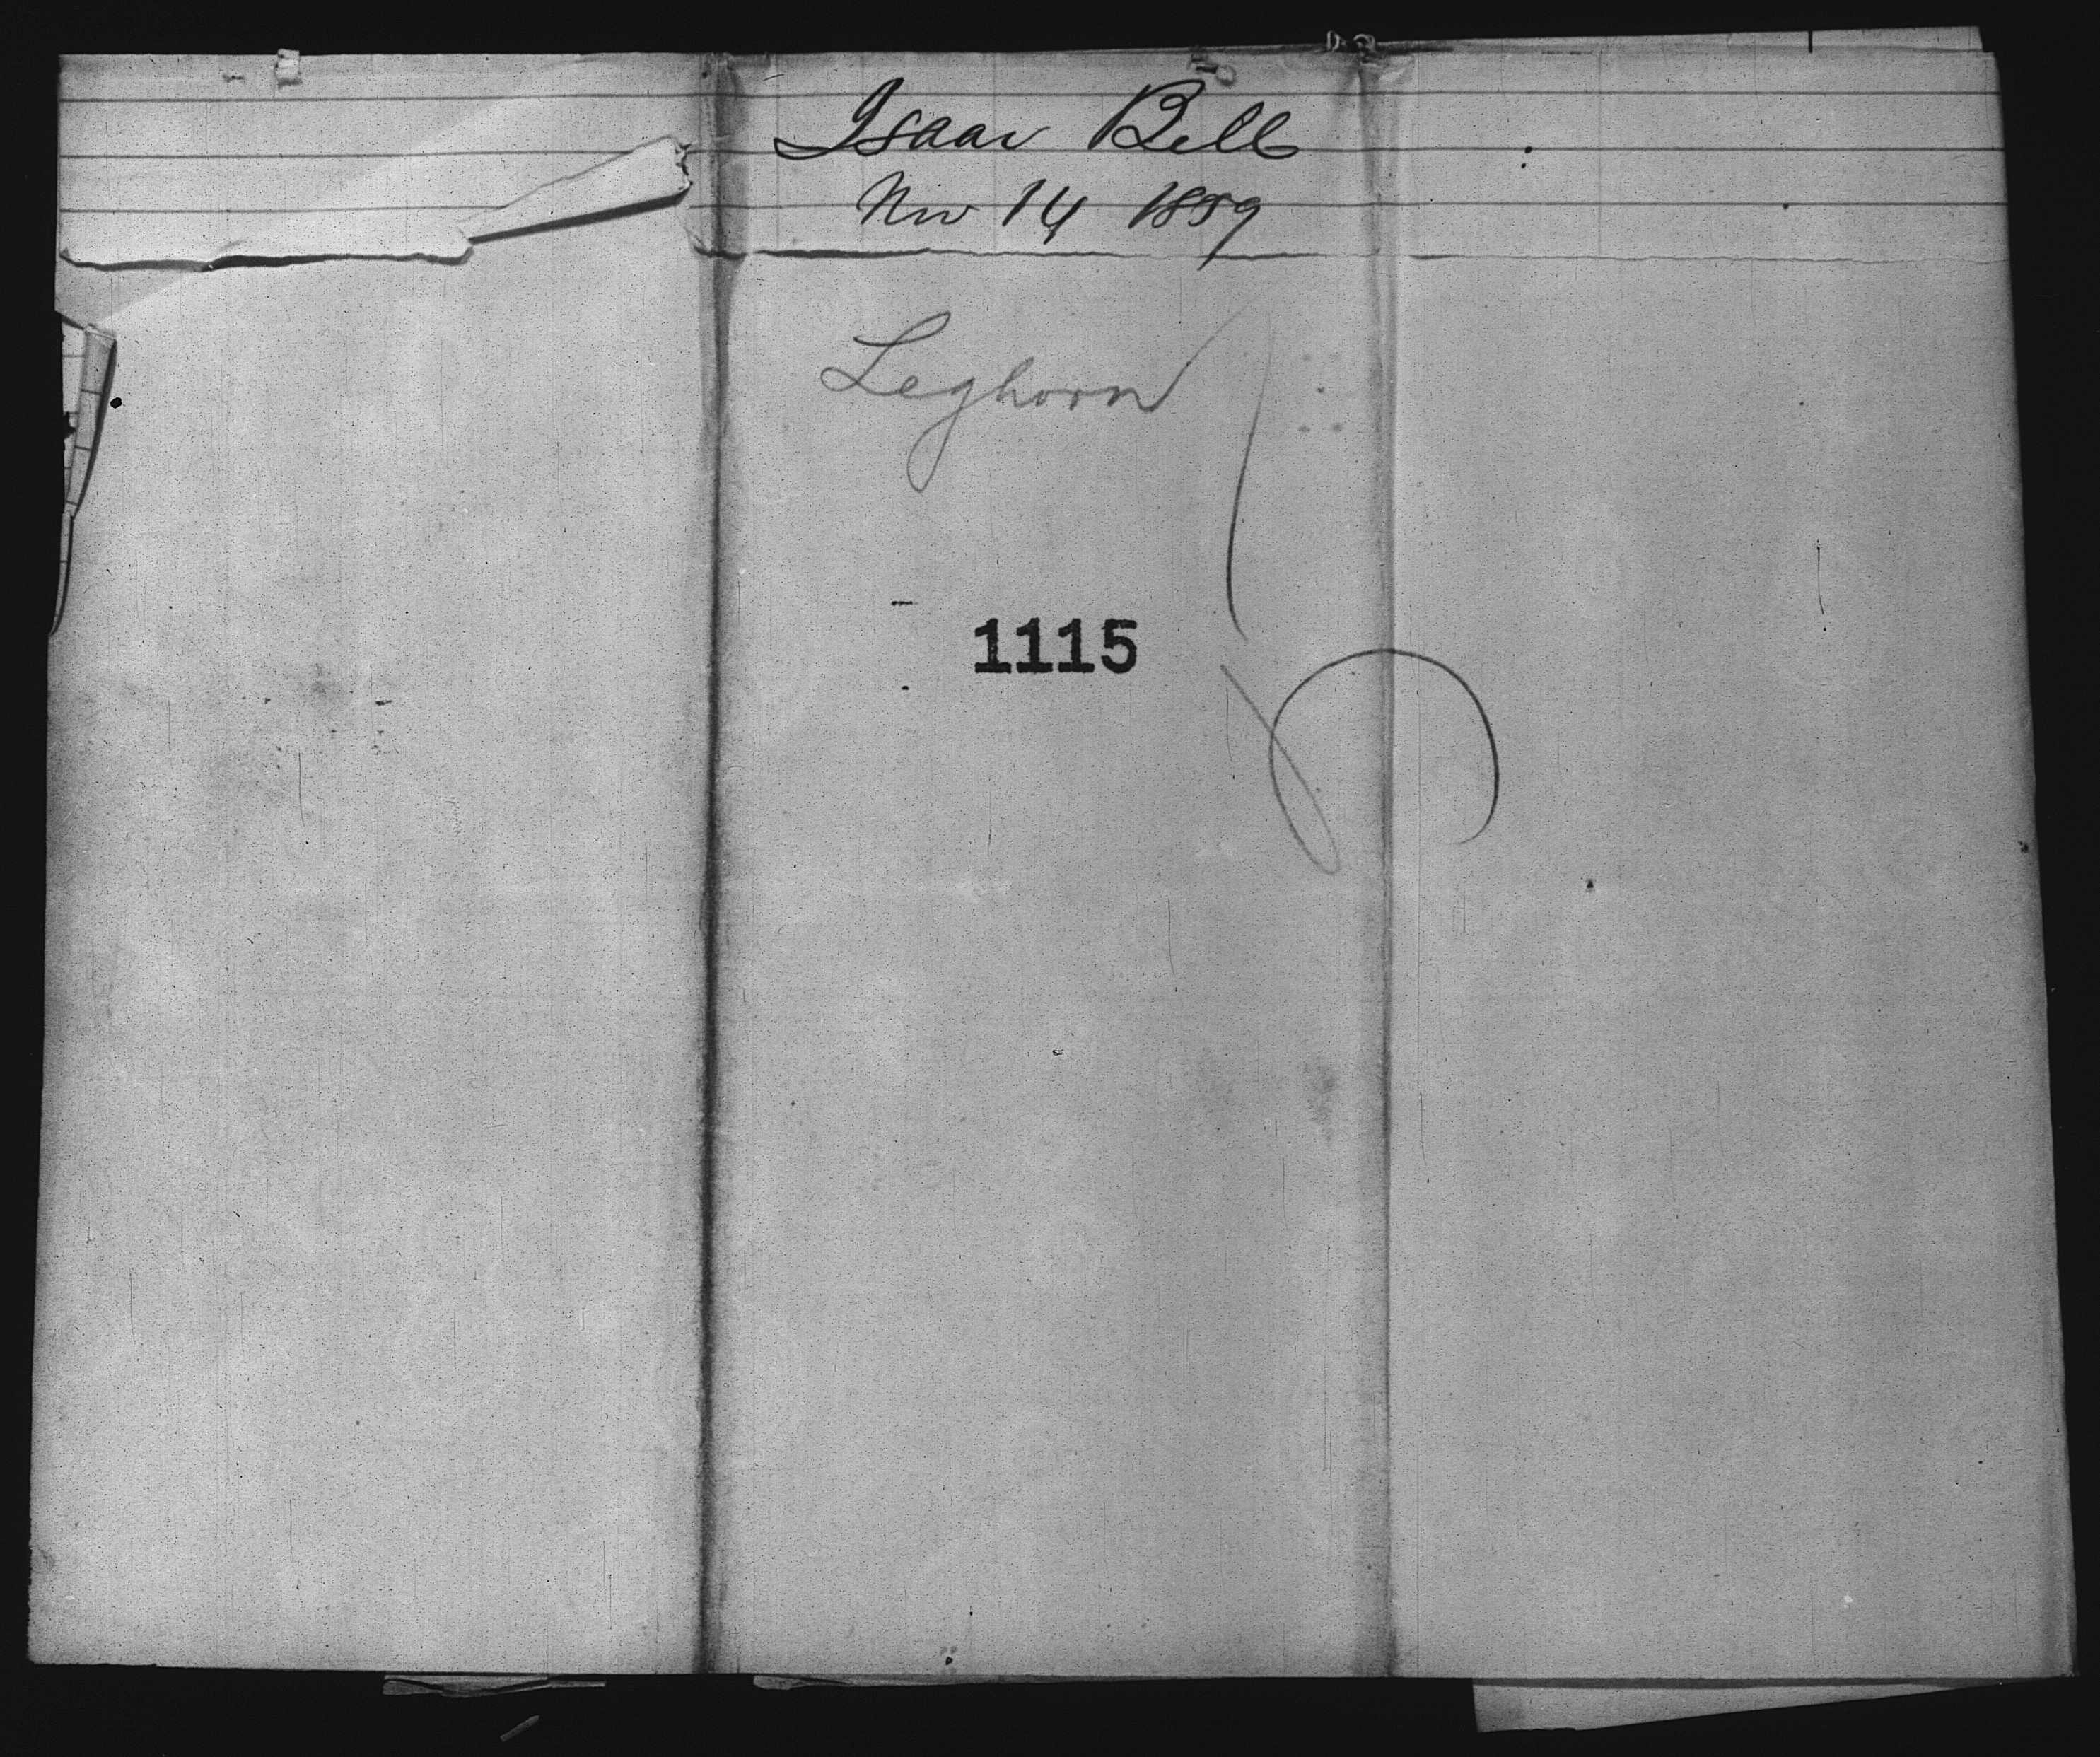 Isaac Bell
Nov 14 1889
Leghorn
1115